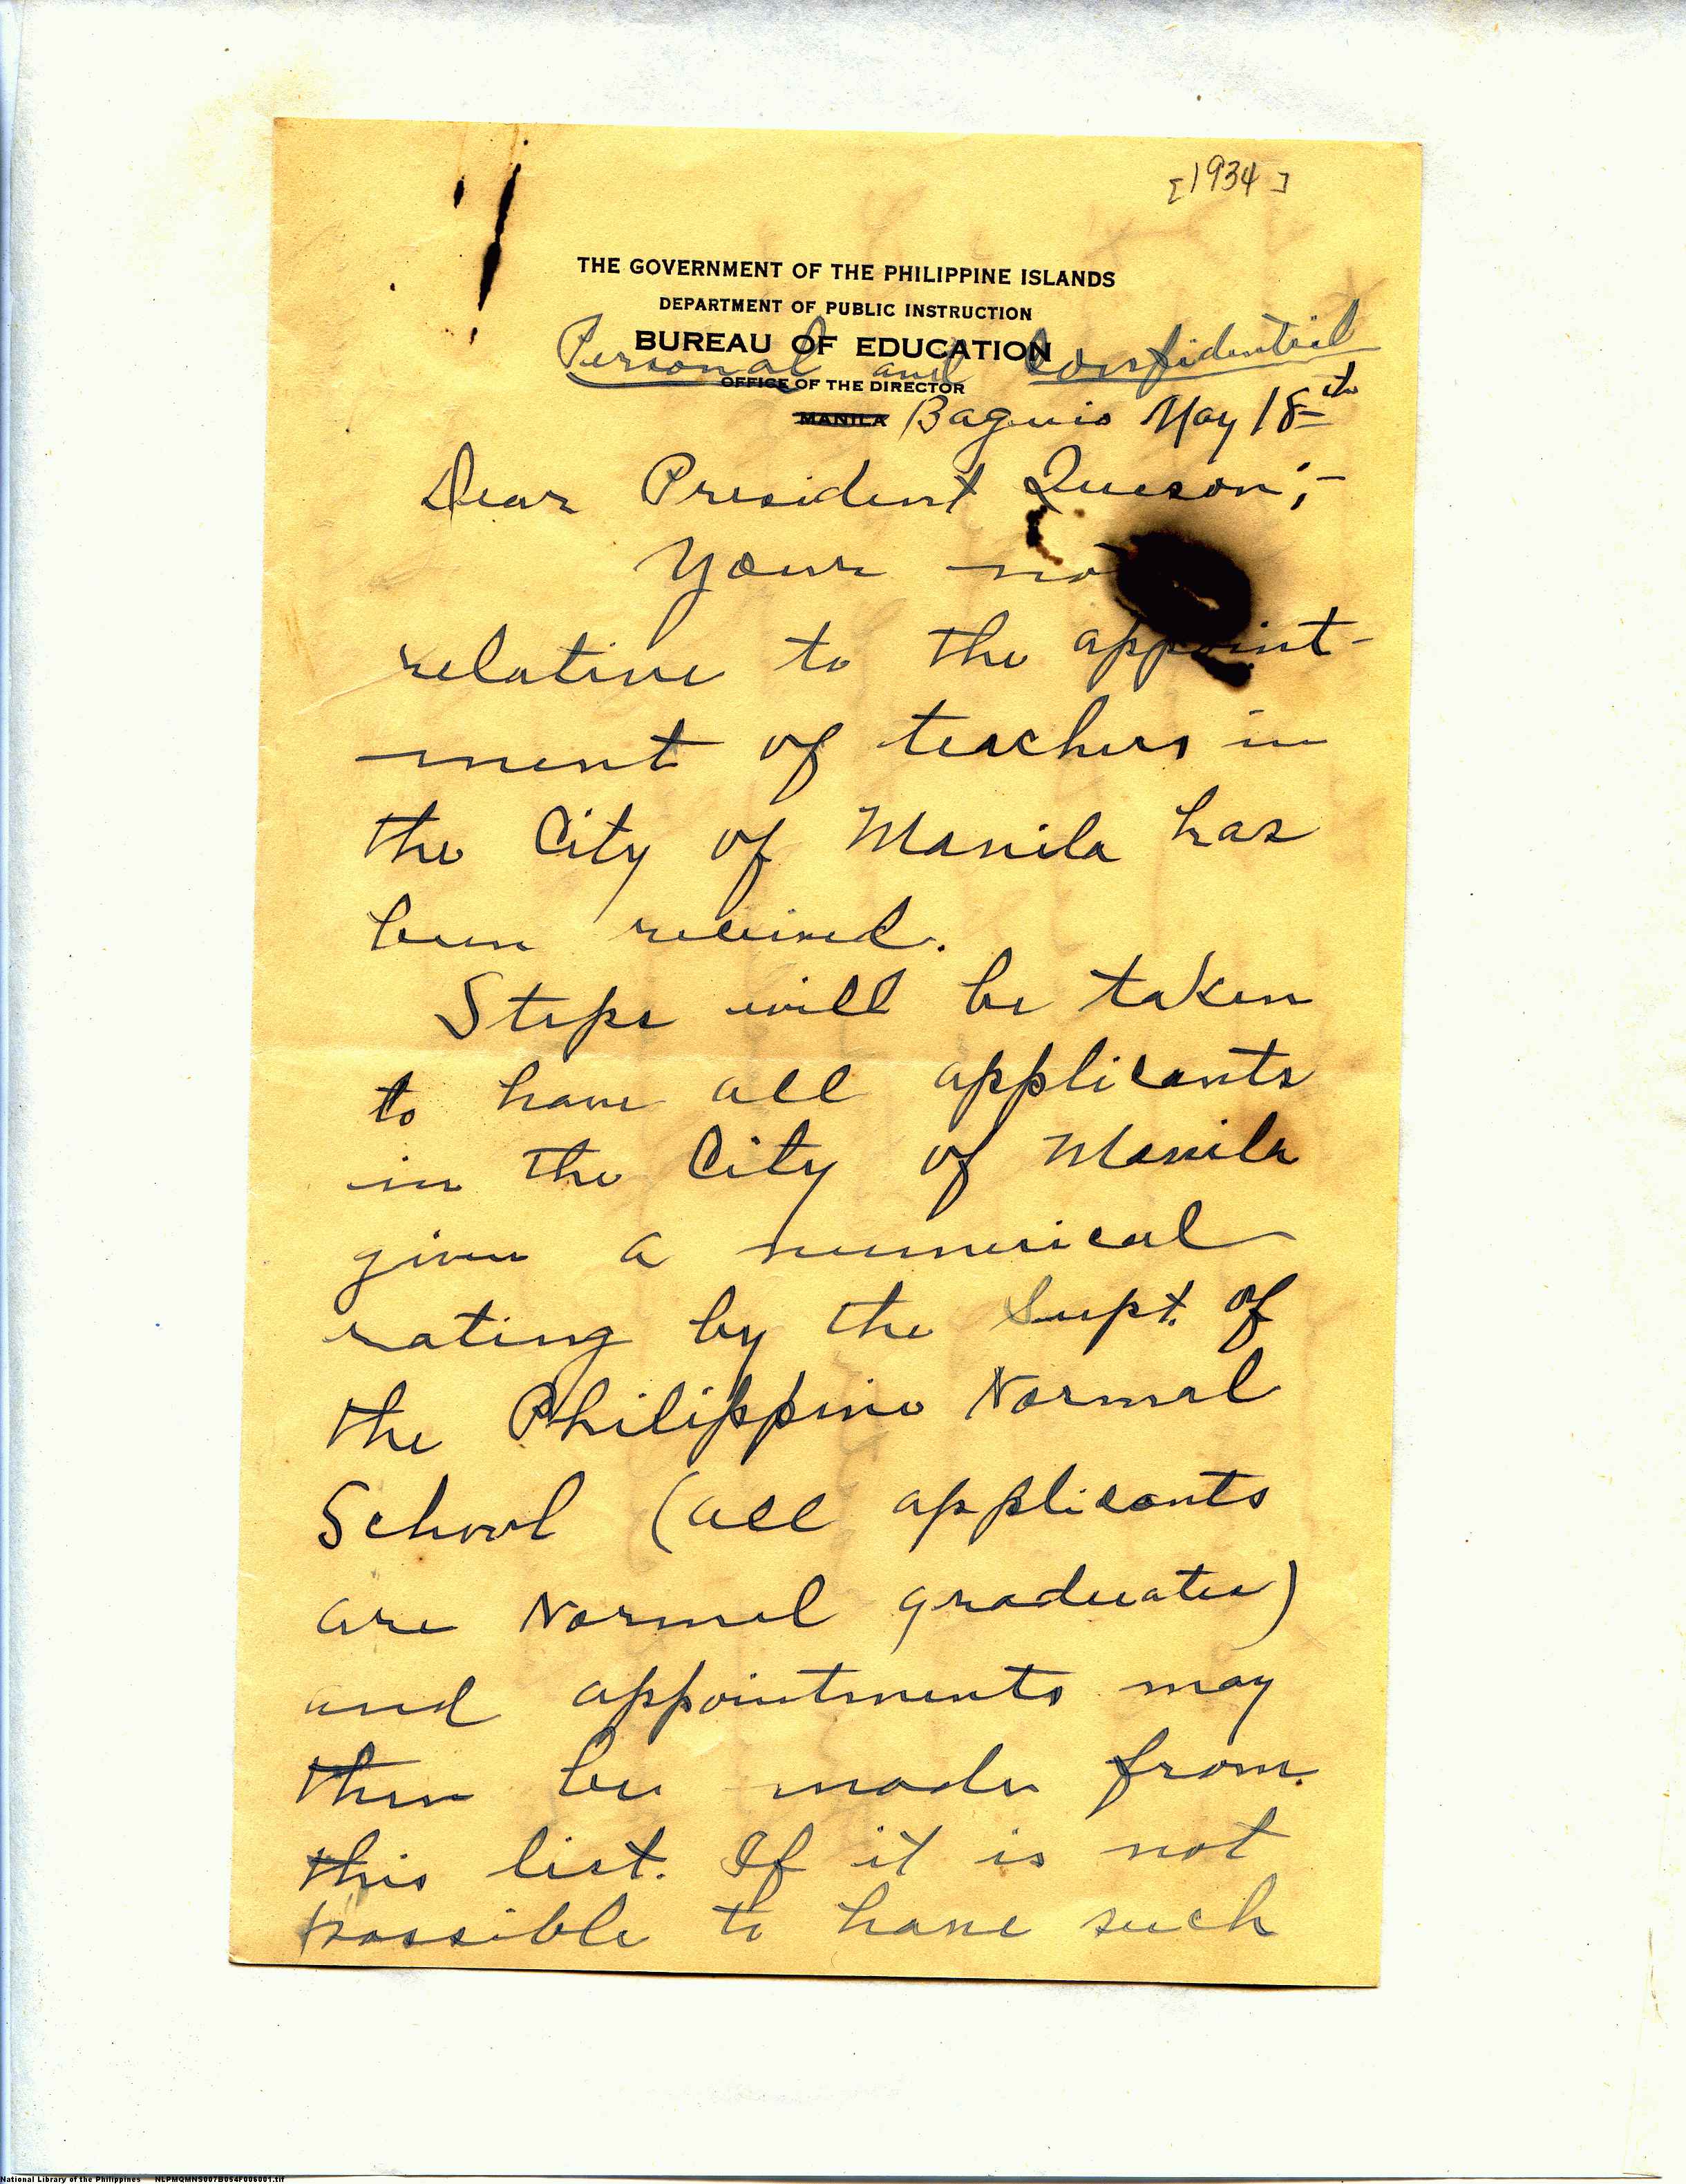 [1934]
THE GOVERNMENT OF THE PHILIPPINE ISLANDS
DEPARTMENT OF PUBLIC INSTRUCTION
BUREAU OF EDUCATION
Personal and Confidential
OFFICE OF THE DIRECTOR
MANILA Baguio May 18th
Dear President Quezon;-
Your
relative to the appoint-
ment of teachers in
the City of Manila has
been received.
Steps will be taken
to have all applicants
in the City of Manila
given a numerical
rating by the Supt. of
the Philippine Normal
School (all applicants
are Normal graduates)
and appointments may
then be made from
this list. If it is not
possible to have such
National Library of the Philippines NLPMQMNS007B054F006001.tif